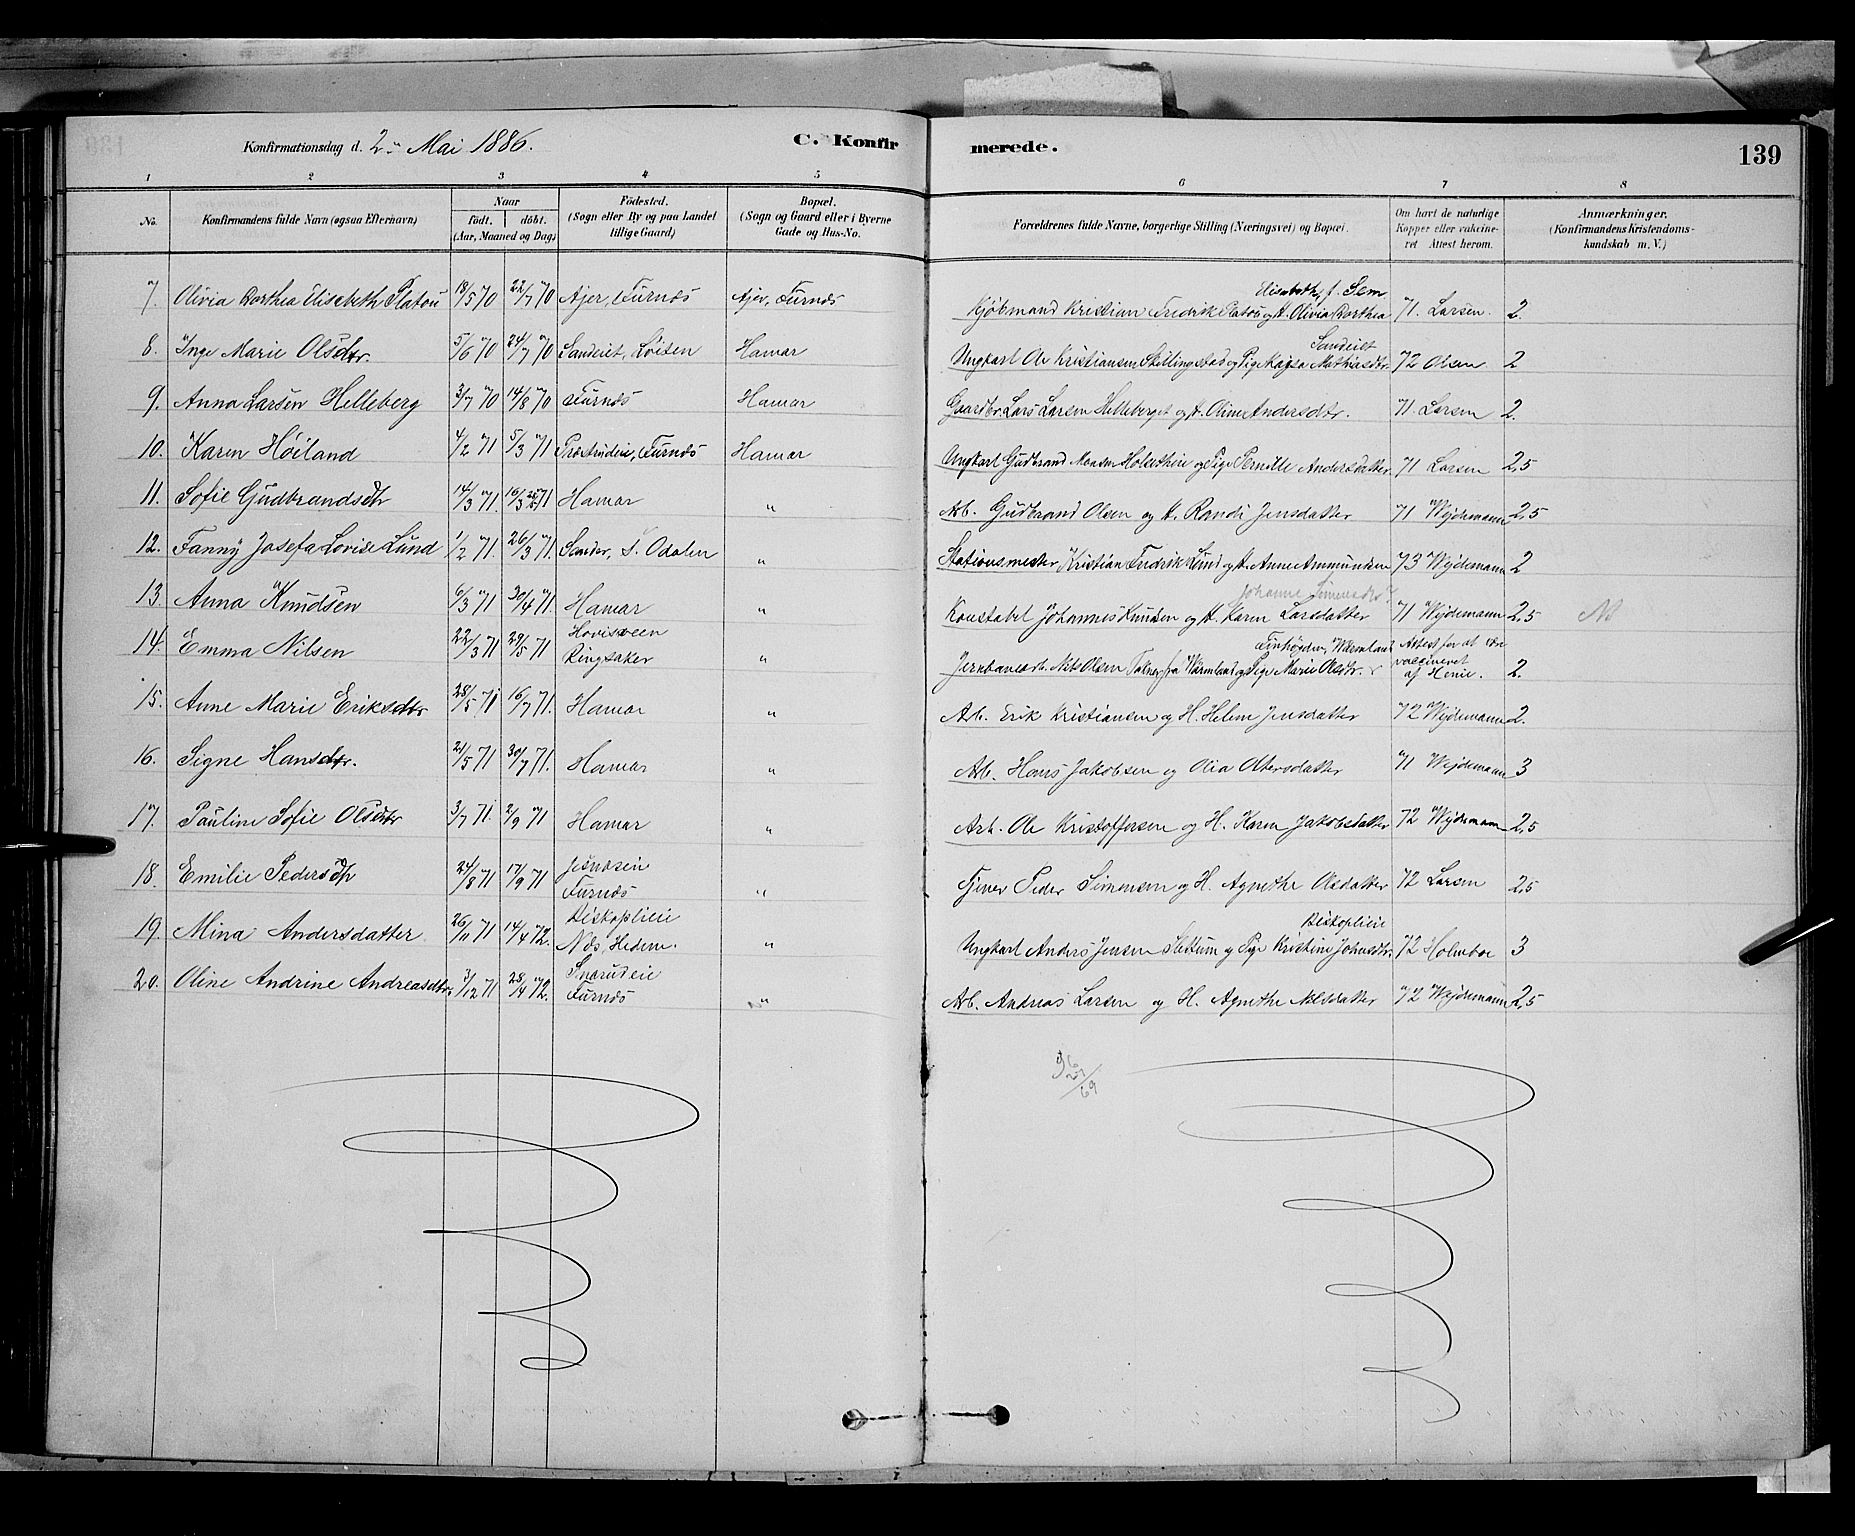 Konfirmationsdag d. 2den Mai 1886. C. Konfirmerede. 139
1 2 3 4 5 6 7 8
No. Konfirmandens fulde Navn (ogsaa Efternavn) Naar födt. döbt. (Aar, Maaned og Dag) Födested. (Sogn eller By og paa Landet tillige Gaard) Bopæl. (Sogn og Gaard eller i Byerne Gade og Hus-No. Forældrenes fulde Navne, borgerlige Stilling (Næringsvei) og Bopæl. Om havt de naturlige Kopper eller vakcineret Attest herom. Anmærkninger. (Konfirmandens Kristendomskundskab m. V.)
Elisabeth, f. Sem
7. Olivia Dorthea Elisabeth Platou 18/5 70 22/7 70 Ajer, Furnæs Ajer, Furnæs Kjøbmand Kristian Fredrik Platou og H. Olivia Dorthea 71. Larsen. 2.
Sandeiet
8. Inge Marie Olsdtr. 5/6 70 24/7 70 Sandeiet, Løiten Hamar Ungkarl Ole Kristiansen Skillingstad og Pige Kajsa Mathiasdtr. 72 Olsen 2
9. Anna Larsen Helleberg 3/7 70 14/8 70 Furnæs Hamar Gaardbr. Lars Larsen Helleberget og H. Oline Andersdtr. 71. Larsen 2.
10. Karen Høiland 4/2 71 5/3 71 Furnæs Hamar Ungkarl Gudbrand og Pige Pernille Andersdatter 71 Larsen 2,5
11. Sofie Gudbrandsdtr 14/3 71. 16/3 71 Hamar " Arb. Gudbrand Olsen og H. Randi Jensdatter 71 Wejdemann 2,5
12. Fanny Josefa Lovise Lund 1/2 71. 26/3 71. Sander, S. Odalen " Stationsmester Kristian Fredrik Lund og H. Anne Ammundsen 73 Wejdemann 2
Johanne Simensdtr?
13. Anna Knudsen 6/3 71 30/4 71. Hamar " Konstabel Johannes Knudsen og H. Karen Larsdatter 71 Wejdemann 2,5
14. Emma Nilsen 22/3 71 29/5 71 Hovisveen Ringsaker " Jernbanearb. Nils Olsen fra Wärmland og Pige Marie Olsdtr. Wärmland Attest for at være vaccineret af Henie. 2.
15. Anne Marie Eriksdtr 28/5 71 16/7 71. Hamar " Arb. Erik Kristiansen og H. Helene Jensdatter 72 Wejdemann 2.
16. Signe Hansdtr. 21/5 71 30/7 71. Hamar " Arb. Hans Jakobsen og Olia Olersdatter 71 Wejdemann 3
17. Pauline Sofie Olsdtr 3/7 71. 2/9 71 Hamar " Arb. Ole Kristoffersen og H. Karen Jakobsdatter 72 Wejdemann 2,5
18. Emilie Pedersdtr 24/8 71 17/9 71 Jesnæseie Furnæs " Tjener Peder Simensen og H. Agnethe Olsdatter 72 Larsen 2,5
Biskoplieie
19. Mina Andersdatter 26/11 71 14/4 72. Biskoplieie Næs, Hedem. " Ungkarl Anders Jensen Slettum og Pige Kristine Johnsdtr. 72 Holmboe 3
20. Oline Andrine Andreasdtr. 3/12 71 28/4 72. Snarudeie Furnæs " Arb. Andreas Larsen og H. Agnethe Nilsdatter 72 Wejdemann 2,5